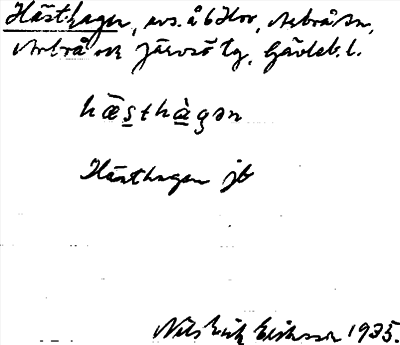 Hästhagen, avs. å 6 Hov, Arbrå sn,
Arbrå och Järvsö tg, Gävleb. l.
hǣs̲thàgən
Hästhagen jb
Nils Erik Eriksson 1935.